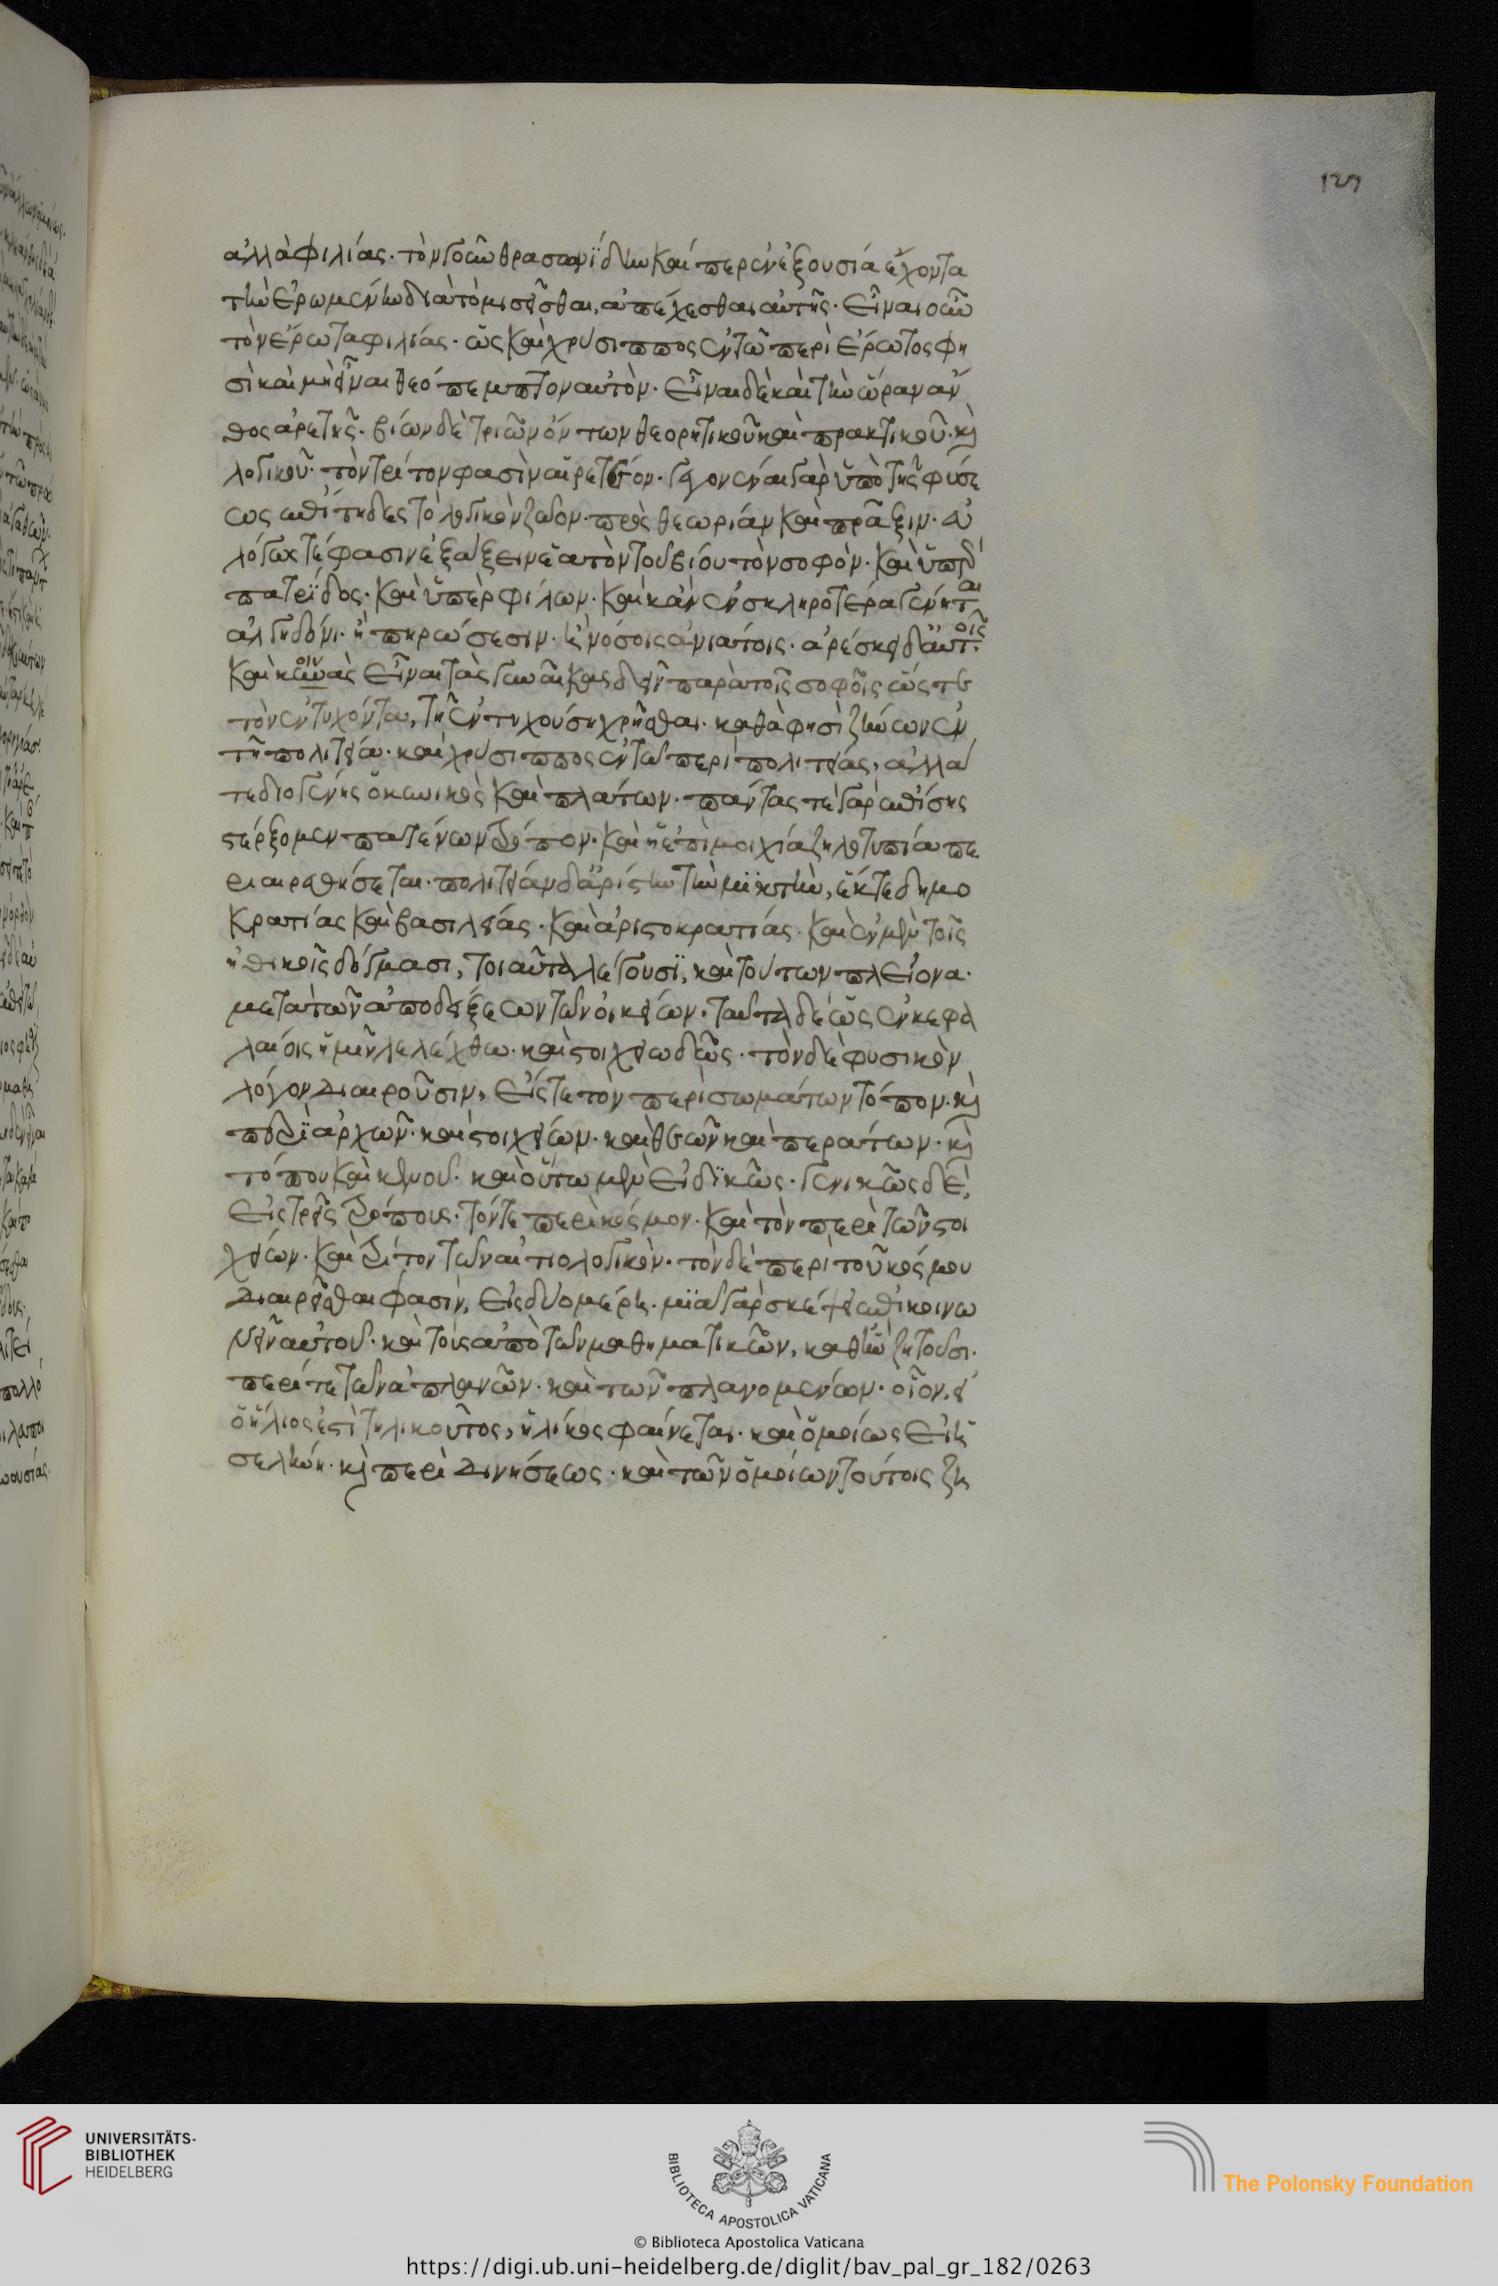 127
ἀλλὰ φιλίας. τὸν γοῦν θρασωνίδην καί περ ἐν ἐξουσία ἔχοντα
τὴν ἐρωμένην διὰ τὸ μισεῖσθαι, ἀπέχεσθαι αὐτῆς. εἶναι οὖν
τὸν ἔρωτα φιλίας. ὡς καὶ χρύσιππος ἐν τῶ περὶ ἔρωτος φη
σὶ καὶ μὴ εἶναι θεόπεμπτον αὐτὸν. εἶναι δὲ καὶ τὴν ὥραν ἄν
θος ἀρετῆς. βίων δὲ τριῶν ὄντων θεορητικοῦ καὶ πρακτικοῦ. κὶ
λογικοῦ. τὸν τρίτον φασὶν αἱρετέον. γεγονέναι γὰρ ὑπὸ τῆς φύσε
ως ἐπίτηδες τὸ λογικὸν ζῶον. πρὸς θεωρίαν καὶ πρᾶξιν. εὐ
λόγως τέ φασιν ἐξάξειν ἑαυτὸν τοῦ βίου τὸν σοφὸν. καὶ ὑπὲρ
πατρίδος. καὶ ὑπὲρ φίλων. καὶ κἂν ἐν σκληροτέρα γένηται
ἀλγηδόνι. ἢ πηρώσεσιν. ἢ νόσοις ἀνιάτοις. ἀρέσκει δ' αὐτοῖς
καὶ κοινὰς εἶναι τὰς γυναῖκας δεῖν παρὰ τοῖς σοφοῖς ὥστε
τὸν ἐντυχόντα, τῆ ἐντυχούση χρῆσθαι. καθά φησὶ ζήνων ἐν
τῆ πολιτεία. καὶ χρύσιππος ἐν τῶ περὶ πολιτείας, ἀλλά
τε διογένης ὁ κυνικὸς καὶ πλάτων. πάντας τὲ γὰρ ἐπίσης
στέρξομεν πατέρων τρόπον. καὶ ἡ ἐπὶ μοιχία ζηλοτυπία πε
ριαιρεθήσεται. πολιτείαν δ' ἀρίστην τὴν μικτὴν, ἔκ τε δημο
κρατίας καὶ βασιλείας. καὶ ἀριστοκρατίας. καὶ ἐν μὲν τοῖς
ἠθικοῖς δόγμασι, τοιαῦτα λέγουσι, καὶ τούτων πλείονα.
μετὰ τῶν ἀποδείξεων τῶν οἰκείων. ταῦτα δὲ ὡς ἐν κεφα
λαίοις ἡμῖν λελέχθω. καὶ στοιχειωδῶς. τὸν δὲ φυσικὸν
λόγον διαιροῦσιν, εἴς τε τὸν περὶ σωμάτων τόπον. κὶ
περὶ ἀρχῶν. καὶ στοιχείων. καὶ θεῶν καὶ περάτων. κὶ
τόπου καὶ κενοῦ. καὶ οὕτω μὲν εἰδικῶς. γενικῶς δὲ,
εἰς τρεῖς τρόπους. τόν τε περὶ κόσμον. καὶ τὸν περὶ τῶν στοι
χείων. καὶ τρίτον τῶν αἰτιολογικὸν. τὸν δὲ περὶ τοῦ κόσμου
διαιρεῖσθαι φασὶν, εἰς δύο μέρη. μιᾶ γὰρ σκέψει ἐπικοινω
νεῖν αὐτοῦ. καὶ τοὺς ἀπὸ τῶν μαθηματικῶν, καθ' ἣν ζητοῦσι.
περί τε τῶν ἀπλανῶν. καὶ τῶν πλανομένων. οἷον, εἰ
ὁ ἥλιος ἐστὶ τηλικοῦτος, ἡλίκος φαίνεται. καὶ ὁμοίως εἰ ἡ
σελήνη. κὶ περὶ δινήσεως. καὶ τῶν ὁμοίων τούτοις ζη
UNIVERSITÄTS-
BIBLIOTHEK
HEIDELBERG
BIBLIOTECA APOSTOLICA VATICANA
The Polonsky Foundation
© Biblioteca Apostolica Vaticana
https://digi.ub.uni-heidelberg.de/diglit/bav_pal_gr_182/0263